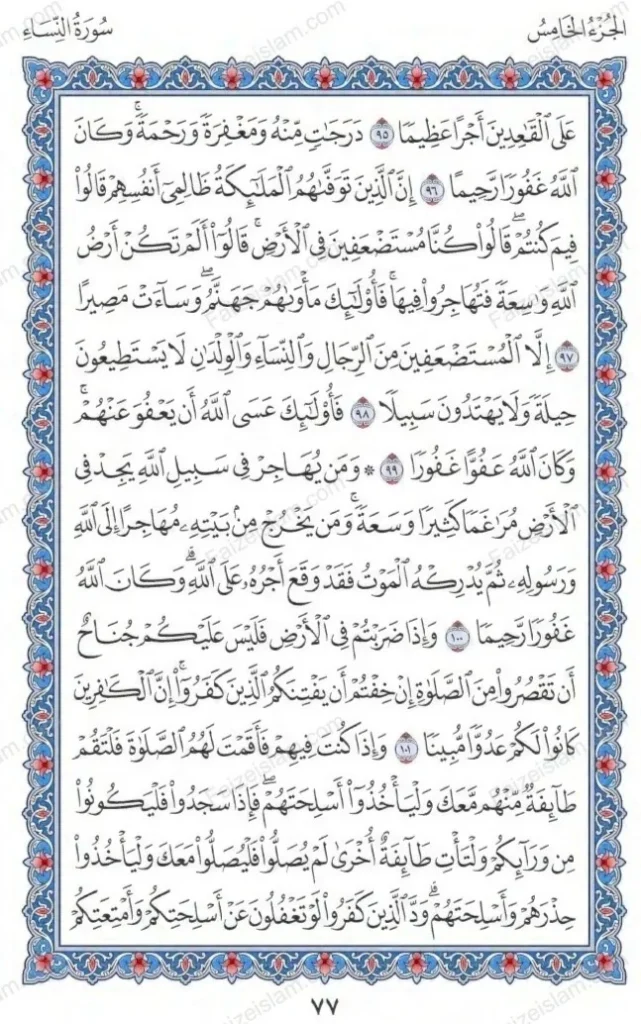 الجُزْءُ الخَامِسُ سُورَةُ النِّسَاءِ
عَلَى ٱلْقَٰعِدِينَ أَجْرًا عَظِيمًا ٩٥ دَرَجَٰتٍ مِّنْهُ وَمَغْفِرَةً وَرَحْمَةً ۚ وَكَانَ
ٱللَّهُ غَفُورًا رَّحِيمًا ٩٦ إِنَّ ٱلَّذِينَ تَوَفَّىٰهُمُ ٱلْمَلَٰٓئِكَةُ ظَالِمِىٓ أَنفُسِهِمْ قَالُوا۟
فِيمَ كُنتُمْ ۖ قَالُوا۟ كُنَّا مُسْتَضْعَفِينَ فِى ٱلْأَرْضِ ۚ قَالُوٓا۟ أَلَمْ تَكُنْ أَرْضُ
ٱللَّهِ وَٰسِعَةً فَتُهَاجِرُوا۟ فِيهَا ۚ فَأُو۟لَٰٓئِكَ مَأْوَىٰهُمْ جَهَنَّمُ ۖ وَسَآءَتْ مَصِيرًا
٩٧ إِلَّا ٱلْمُسْتَضْعَفِينَ مِنَ ٱلرِّجَالِ وَٱلنِّسَآءِ وَٱلْوِلْدَٰنِ لَا يَسْتَطِيعُونَ
حِيلَةً وَلَا يَهْتَدُونَ سَبِيلًا ٩٨ فَأُو۟لَٰٓئِكَ عَسَى ٱللَّهُ أَن يَعْفُوَ عَنْهُمْ ۚ
وَكَانَ ٱللَّهُ عَفُوًّا غَفُورًا ٩٩ * وَمَن يُهَاجِرْ فِى سَبِيلِ ٱللَّهِ يَجِدْ فِى
ٱلْأَرْضِ مُرَٰغَمًا كَثِيرًا وَسَعَةً ۚ وَمَن يَخْرُجْ مِنۢ بَيْتِهِۦ مُهَاجِرًا إِلَى ٱللَّهِ
وَرَسُولِهِۦ ثُمَّ يُدْرِكْهُ ٱلْمَوْتُ فَقَدْ وَقَعَ أَجْرُهُۥ عَلَى ٱللَّهِ ۗ وَكَانَ ٱللَّهُ
غَفُورًا رَّحِيمًا ١٠٠ وَإِذَا ضَرَبْتُمْ فِى ٱلْأَرْضِ فَلَيْسَ عَلَيْكُمْ جُنَاحٌ
أَن تَقْصُرُوا۟ مِنَ ٱلصَّلَوٰةِ إِنْ خِفْتُمْ أَن يَفْتِنَكُمُ ٱلَّذِينَ كَفَرُوٓا۟ ۚ إِنَّ ٱلْكَٰفِرِينَ
كَانُوا۟ لَكُمْ عَدُوًّا مُّبِينًا ١٠١ وَإِذَا كُنتَ فِيهِمْ فَأَقَمْتَ لَهُمُ ٱلصَّلَوٰةَ فَلْتَقُمْ
طَآئِفَةٌ مِّنْهُم مَّعَكَ وَلْيَأْخُذُوٓا۟ أَسْلِحَتَهُمْ ۖ فَإِذَا سَجَدُوا۟ فَلْيَكُونُوا۟
مِن وَرَآئِكُمْ وَلْتَأْتِ طَآئِفَةٌ أُخْرَىٰ لَمْ يُصَلُّوا۟ فَلْيُصَلُّوا۟ مَعَكَ وَلْيَأْخُذُوا۟
حِذْرَهُمْ وَأَسْلِحَتَهُمْ ۗ وَدَّ ٱلَّذِينَ كَفَرُوا۟ لَوْ تَغْفُلُونَ عَنْ أَسْلِحَتِكُمْ وَأَمْتِعَتِكُمْ
٧٧
Faizeislam.com